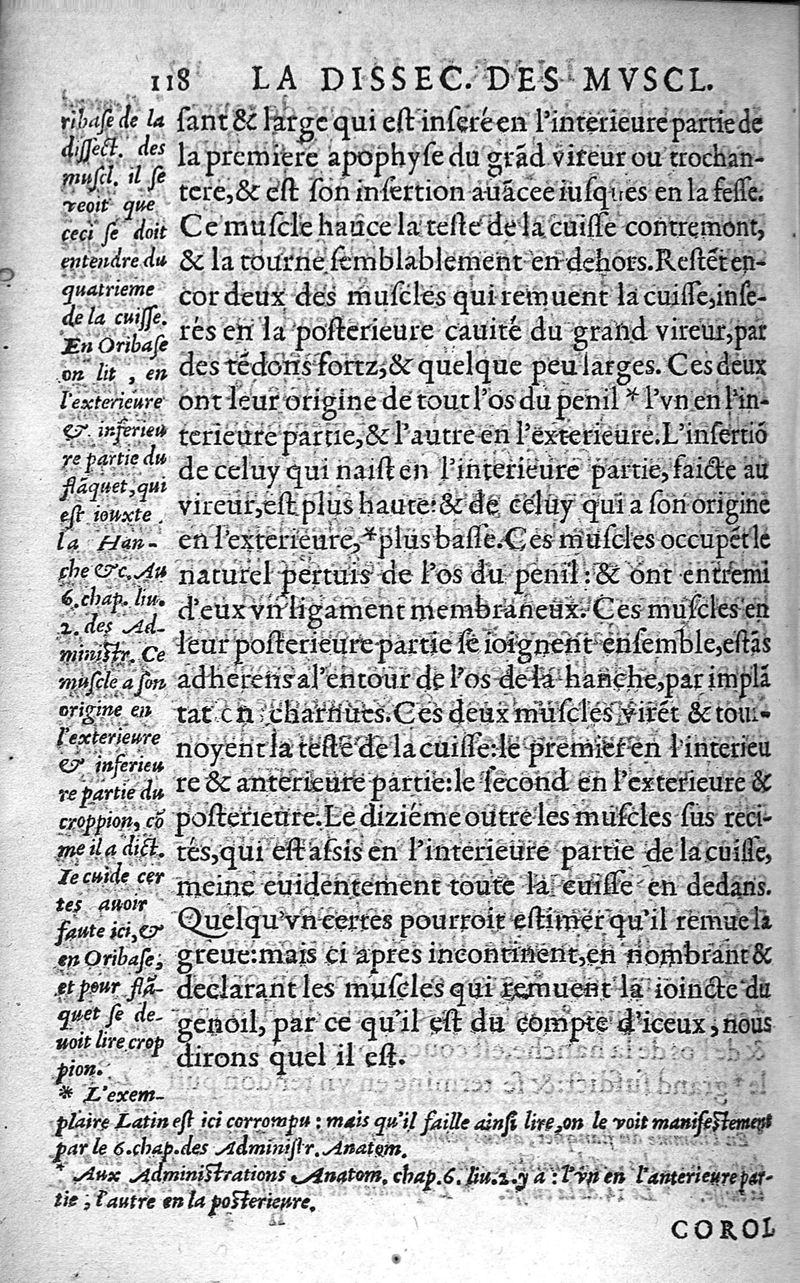 118 LA DISSEC. DES MVSCL.
ribaſe de la
diſſect. des
muſcl. il ſe
veoit que
ceci ſe doit
entendre du
quatrieme
de la cuiſſe.
En Oribaſe
on lit , en
l'exterieure
& inferieu
re partie du
flãquet, qui
eſt iouxte
la Han-
che &c. Au
6. chap. liu.
2. des Ad-
miniſtr. Ce
muſcle a ſon
origine en
l'exterieure
& inferieu
re partie du
croppion, cõ
me il a dict.
Ie cuide cer
tes auoir
faute ici, &
en Oribaſe,
et pour flã-
quet ſe de-
uoit lire crop
pion.
* L'exem-
ſant & large qui eſt inſeré en l'interieure partie de
la premiere apophyſe du grãd vireur ou trochan-
tere, & eſt ſon inſertion auãcee iuſques en la feſſe.
Ce muſcle hauce la teſte de la cuiſſe contremont,
& la tourne ſemblablement en dehors. Reſtẽt en-
cor deux des muſcles qui remuent la cuiſſe, inſe-
rés en la poſterieure cauité du grand vireur, par
des tẽdons fortz, & quelque peu larges. Ces deux
ont leur origine de tout l'os du penil * l'vn en l'in-
terieure partie, & l'autre en l'exterieure. L'inſertiõ
de celuy qui naiſt en l'interieure partie, faicte au
vireur, eſt plus haute: & de celuy qui a ſon origine
en l'exterieure, * plus baſſe. Ces muſcles occupẽt le
naturel pertuis de l'os du penil : & ont entremi
d'eux vn ligament membraneux. Ces muſcles en
leur poſterieure partie ſe ioignent enſemble, eſtãs
adherens a l'entour de l'os de la hanche, par implã
tat en charnues. Ces deux muſcles virẽt & tour-
noyent la teſte de la cuiſſe: le premier en l'interieu
re & anterieure partie: le ſecond en l'exterieure &
poſterieure. Le diziéme outre les muſcles ſus reci-
tés, qui eſt aſsis en l'interieure partie de la cuiſſe,
meine euidentement toute la cuiſſe en dedans.
Quelqu'vn certes pourroit eſtimer qu'il remue la
greue: mais ci apres incontinent, en nombrant &
declarant les muſcles qui remuent la ioincte du
genoil, par ce qu'il eſt du compte d'iceux, nous
dirons quel il eſt.
plaire Latin eſt ici corrompu : mais qu'il faille ainſi lire, on le voit manifeſtement
par le 6. chap. des Adminiſtr. Anatom.
* Aux Adminiſtrations Anatom. chap. 6. liu. 2. y a : l'vn en l'anterieure par-
tie, l'autre en la poſterieure.
COROL